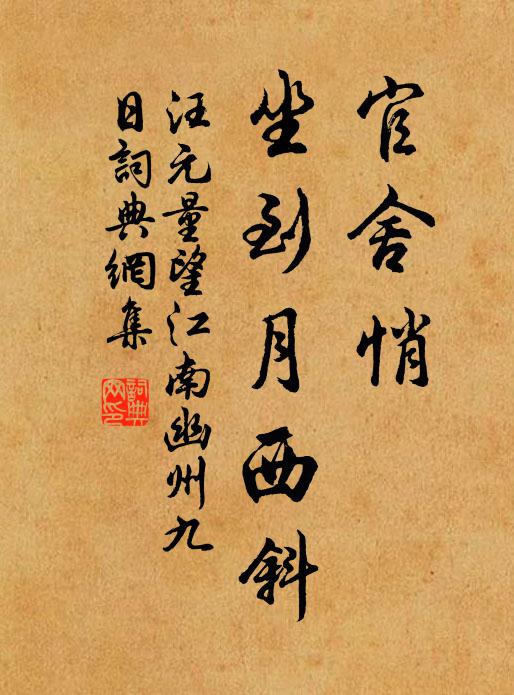 官舍悄
坐到月西斜
汪元量望江南幽州九
日詞典網集
詞典
網印